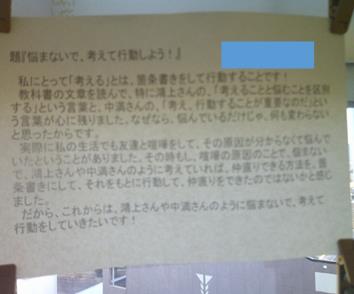 題『悩まないで、考えて行動しよう！』
私にとって「考える」とは、箇条書きをして行動することです！
教科書の文章を読んで、特に鴻上さんの、「考えることと悩むことを区別
する」という言葉と、中満さんの、「考え、行動することが重要なのだ」とい
う言葉が心に残りました。なぜなら、悩んでいるだけじゃ、何も変わらない
と思ったからです。
実際に私の生活でも友達と喧嘩をして、その原因が分からなくて悩んで
いたということがありました。その時もし、喧嘩の原因のことで、悩まない
で、鴻上さんや中満さんのように考えていれば、仲直りできる方法を、箇
条書きにして、それをもとに行動して、仲直りをできたのではないかと感じ
ました。
だから、これからは、鴻上さんや中満さんのように悩まないで、考えて
行動をしていきたいです！